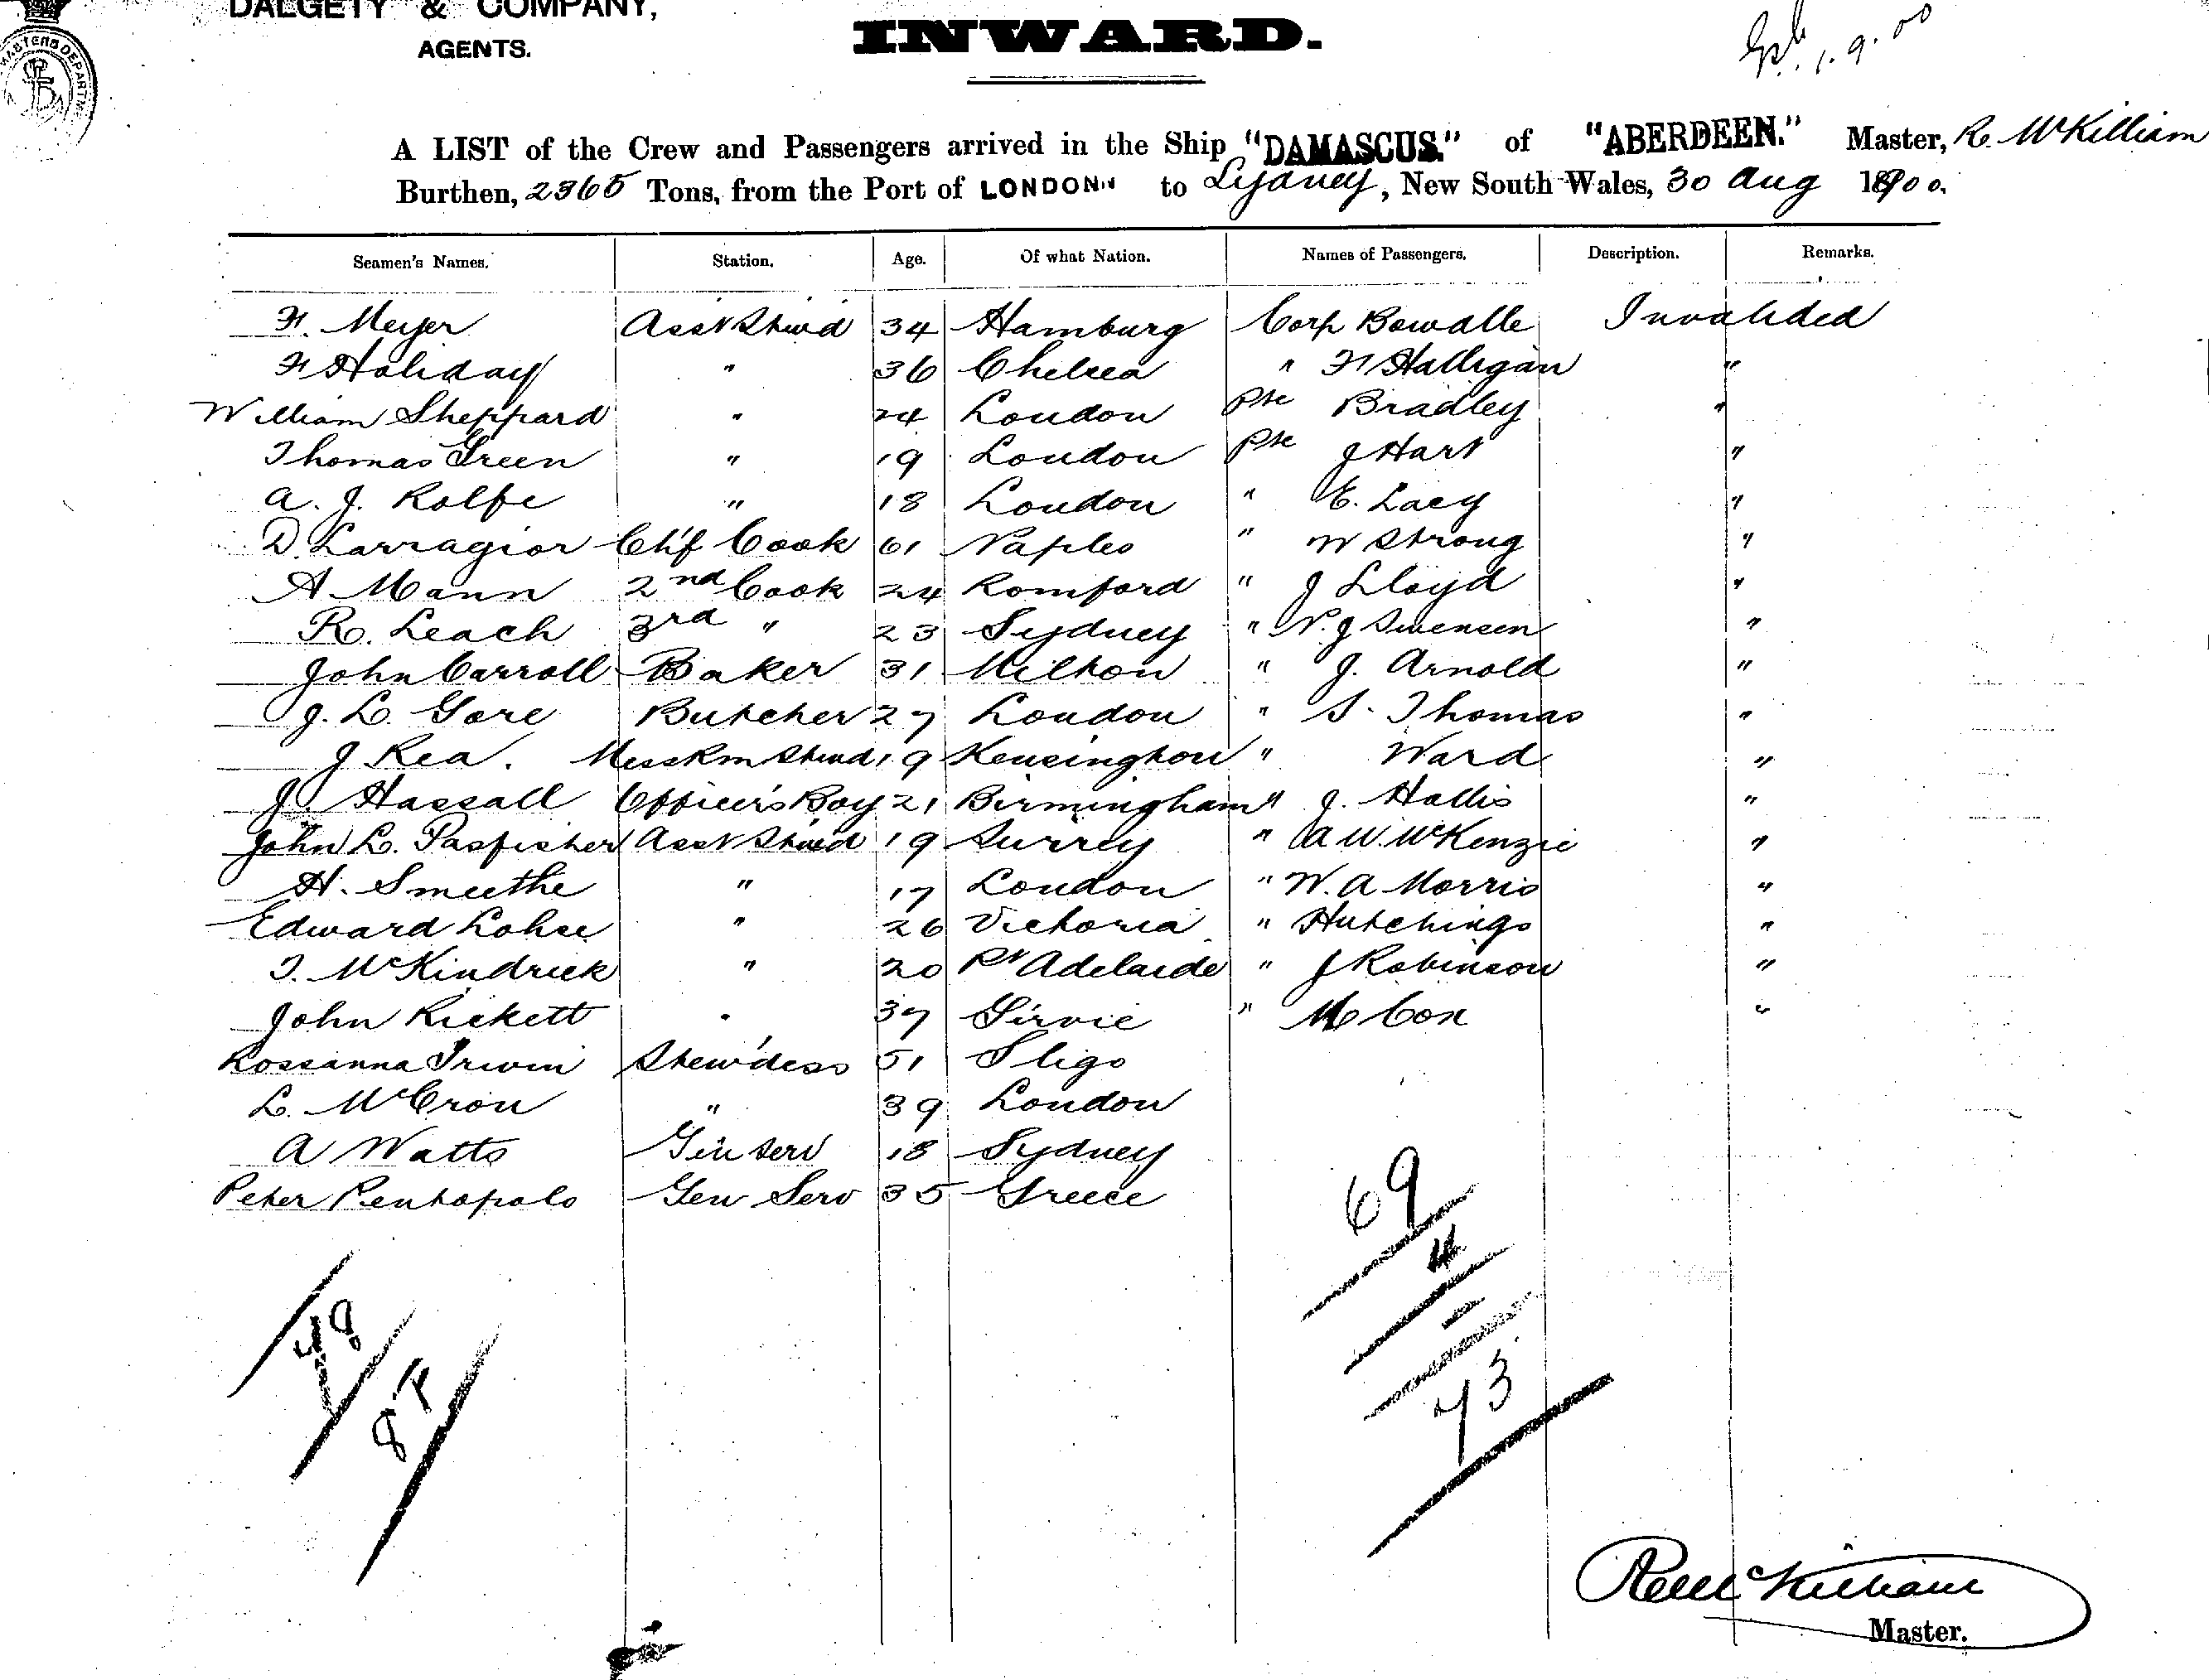 DALGETY & COMPANY,
AGENTS.
INWARD.
1.9.00
A LIST of the Crew and Passengers arrived in the Ship "DAMASCUS." of "ABERDEEN." Master, R. McKilliam
Burthen, 2365 Tons, from the Port of LONDON to Sydney, New South Wales, 30 Aug 1900.
Seamen's Names. Station. Age. Of what Nation. Names of Passengers. Description. Remarks.
F. Meyer Asst Stwd 34 Hamburg Corp Bowdlle Invalided
F Holiday " 36 Chelsea " F Halligan "
William Sheppard " 24 London Pte Bradley "
Thomas Green " 19 London Pte J Hart "
A. J. Rolfe " 18 London " E. Lacy "
D. Larragior Ch'f Cook 61 Naples " W Strong "
A Mann 2nd Cook 24 Romford " J Lloyd "
R. Leach 3rd " 23 Sydney " N. J Swensen "
John Carroll Baker 31 Milton " J. Arnold "
J. L. Gore Butcher 27 London " S. Thomas "
J Rea. MessRm Stwd 19 Kensington " Ward "
J. Hassall Officers Boy 21 Birmingham " J. Hallis "
John L. Pasfisher Asst Stwd 19 Surrey " A W. McKenzie "
H. Smeethe " 17 London " W. A Morris "
Edward Lohse " 26 Victoria " Hutchings "
T. McKindrick " 20 Pt Adelaide " J Robinson "
John Rickett " 37 Girvie " M Cox "
Rossanna Irwin Stew'dess 51 Sligo
L. McCron " 39 London
A Watts Gen Serv 18 Sydney
Peter Pentopolo Gen Serv 35 Greece
69
4
48
73
87
R McKilliam
Master.